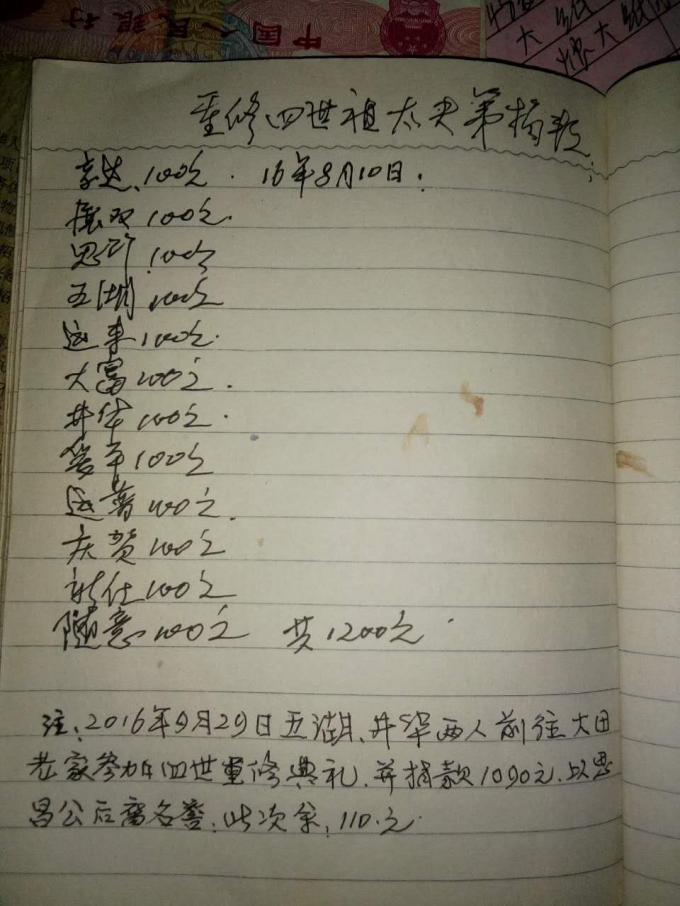 中国人民银行
大 纸
大纸
重修四世祖大夫第捐款
100元. 16年9月10日.
振双100元.
思 100元
五湖100元
运来100元.
大富100元.
井华100元.
荣平100元
运 100元.
庆贺100元
新仕100元
随意100元 共1200元.
注:2016年9月29日五湖、井华两人前往大田
老家参加四世重修典礼.并捐款1090元.以思
昌公后裔名誉.此次余:110.元.